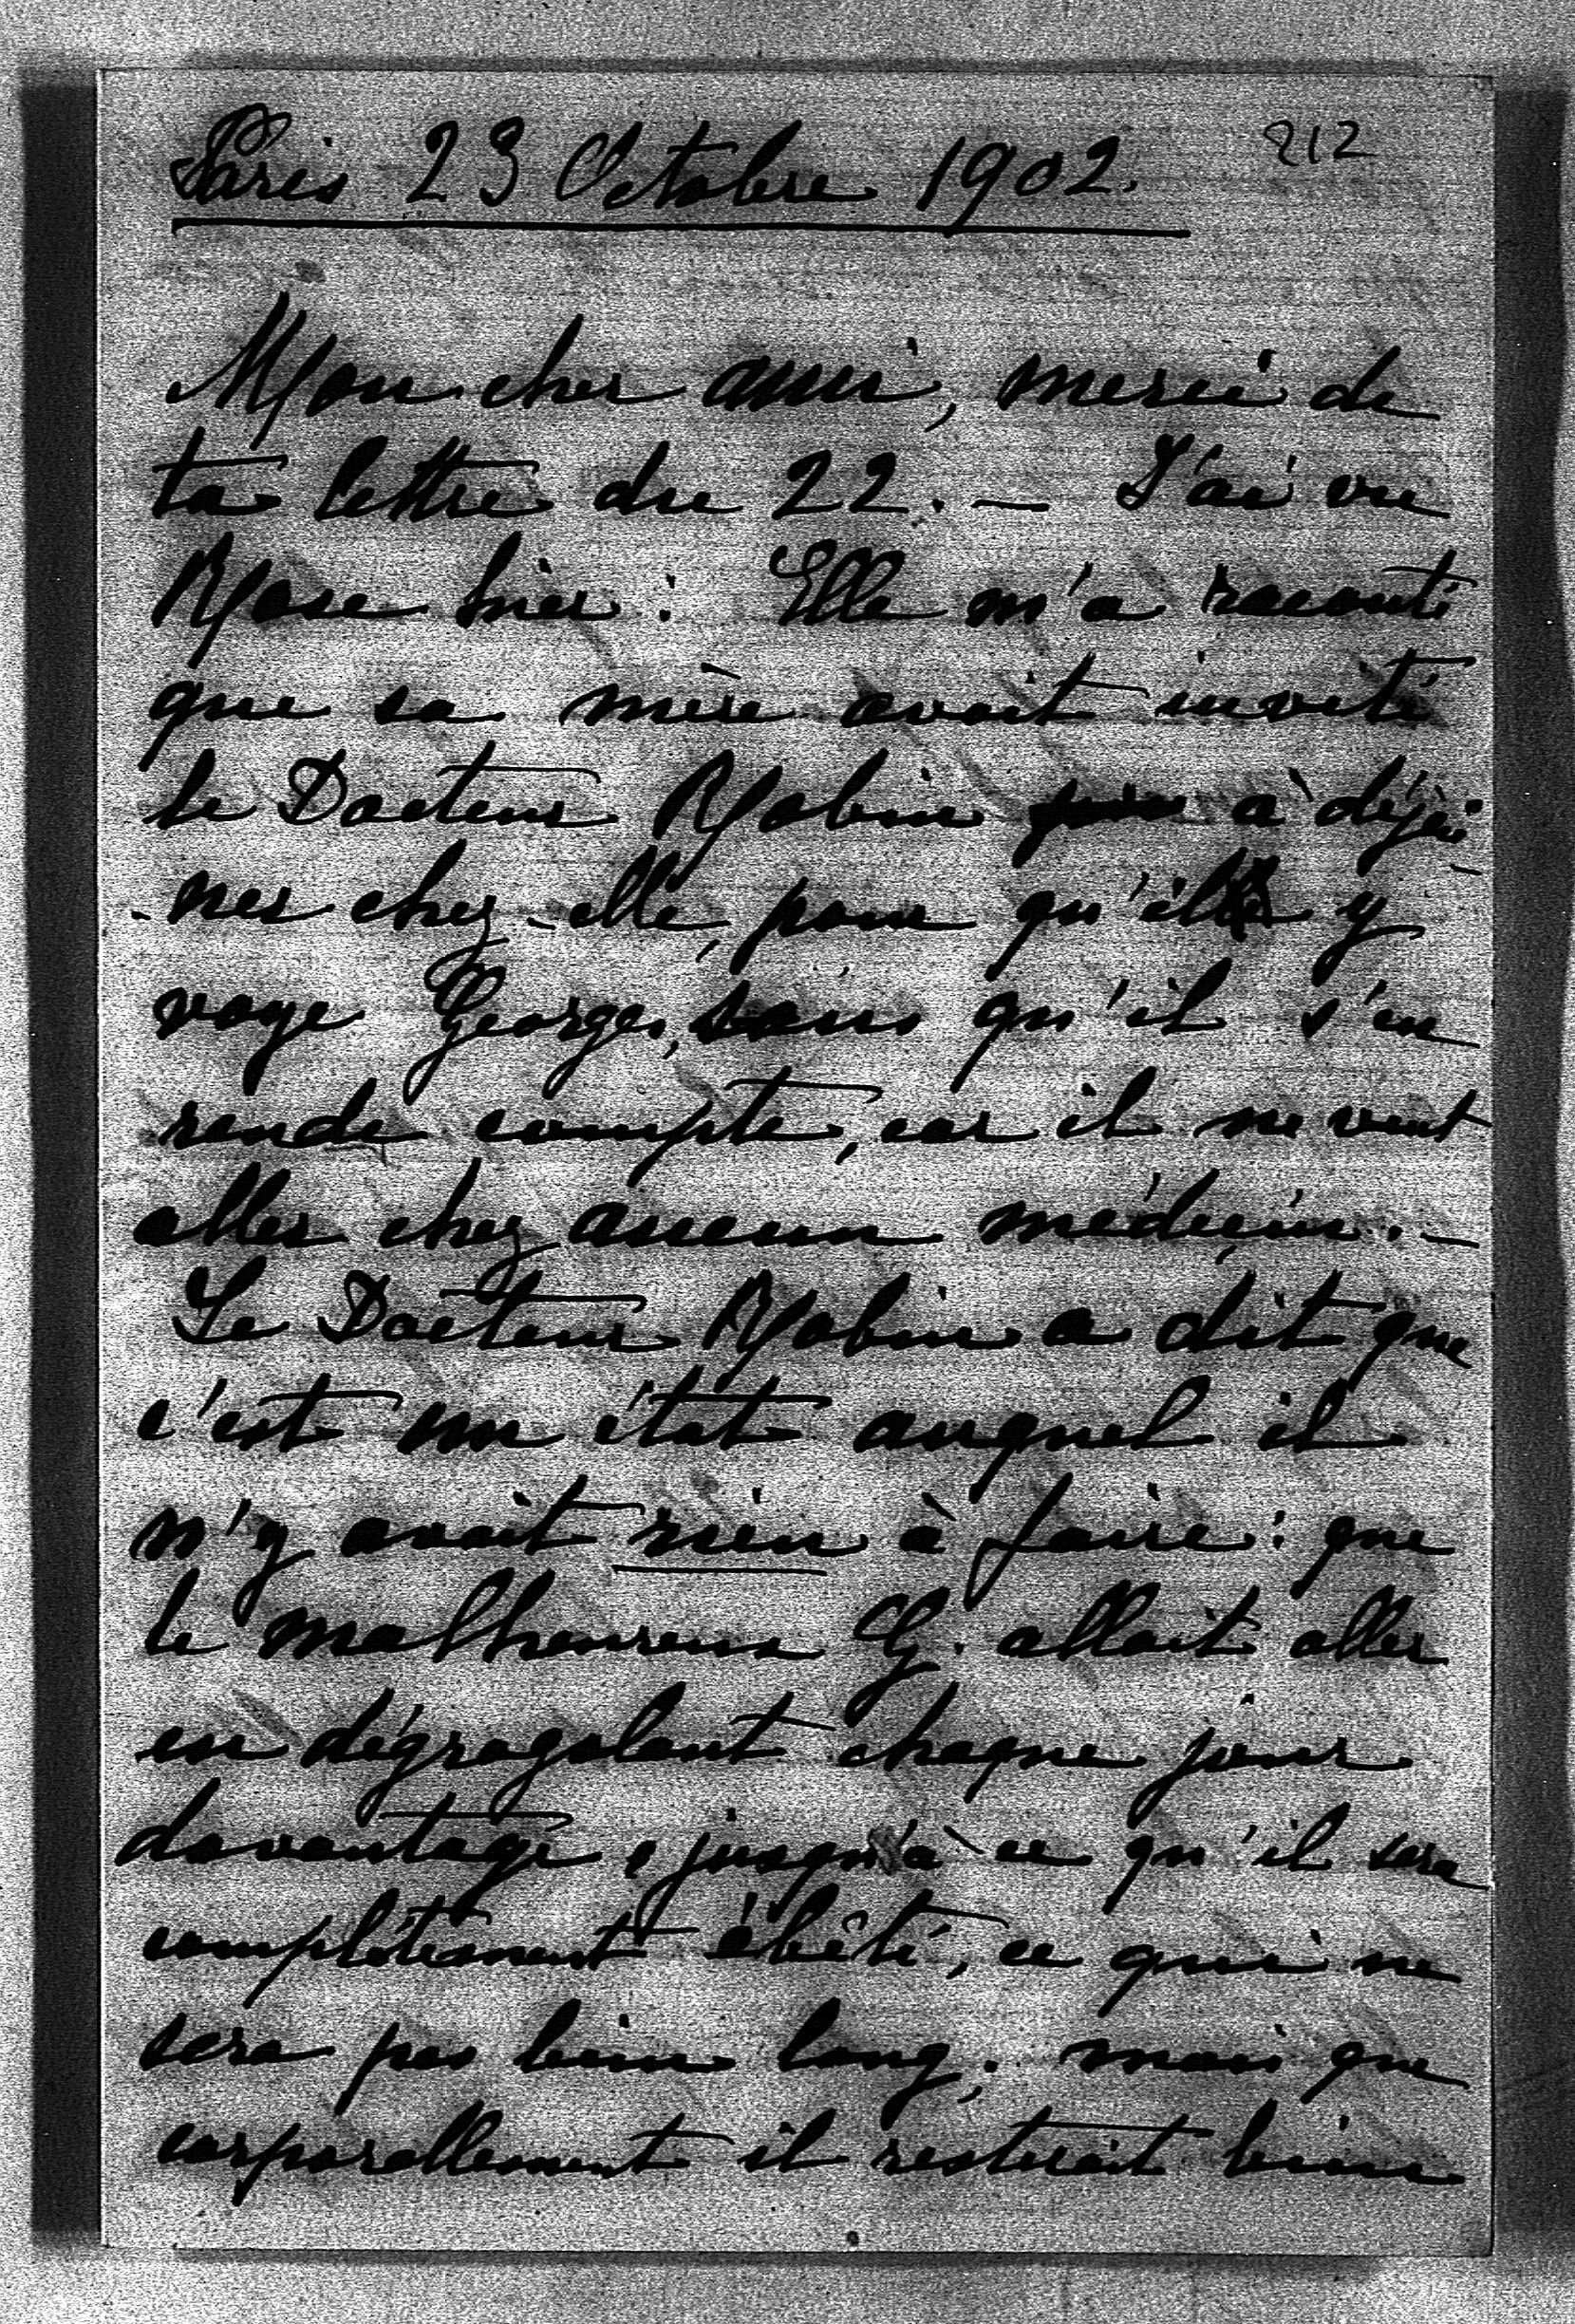 212
Paris 23 Octobre 1902.
Mon cher ami, merci de
ta lettre du 22. — J'ai vu
Rose hier : Elle m'a raconté
que sa mère avait invité
le Docteur Robin à déjeu-
-ner chez-elle, pour qu'il y
voye Georges, sans qu'il s'en
rende compte, car il ne veut
aller chez aucun médecin. —
Le Docteur Robin a dit que
c'est un état auquel il
n'y avait rien à faire : que
le malheureux G. allait aller
en dégragolant chaque jour
davantage, jusqu'à ce qu'il sera
complètement êbêté, ce qui ne
sera pas bien long ; mais que
corporellement il resterait bien